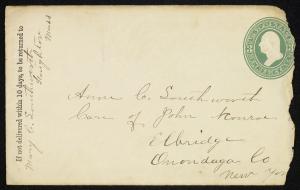 If not delivered within 10 days, to be returned to
Mary C. Southworth
Stoughton
Mass
Anne C. Southworth
Care of John Monroe
Elbridge
Onondaga Co
New York